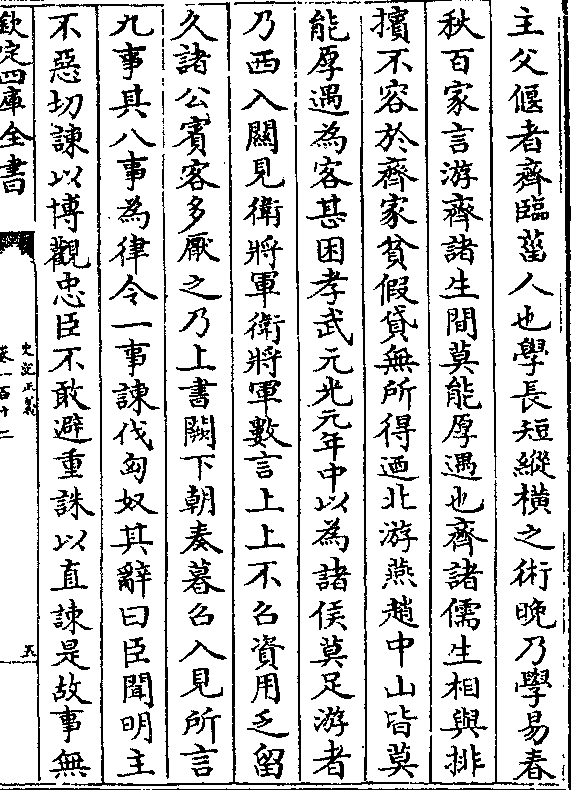 主父偃者齊臨菑人也學長短縱橫之術晚乃學易春
秋百家言游齊諸生間莫能厚遇也齊諸儒生相與排
擯不容於齊家貧假貸無所得迺北游燕趙中山皆莫
能厚遇為客甚困孝武元光元年中以為諸侯莫足游者
乃西入關見衛將軍衛將軍數言上上不召資用乏留
久諸公賓客多厭之乃上書闕下朝奏暮召入見所言
九事其八事為律令一事諫伐匈奴其辭曰臣聞明主
不惡切諫以博觀忠臣不敢避重誅以直諫是故事無
欽定四庫全書
史記正義
卷一百十二
五